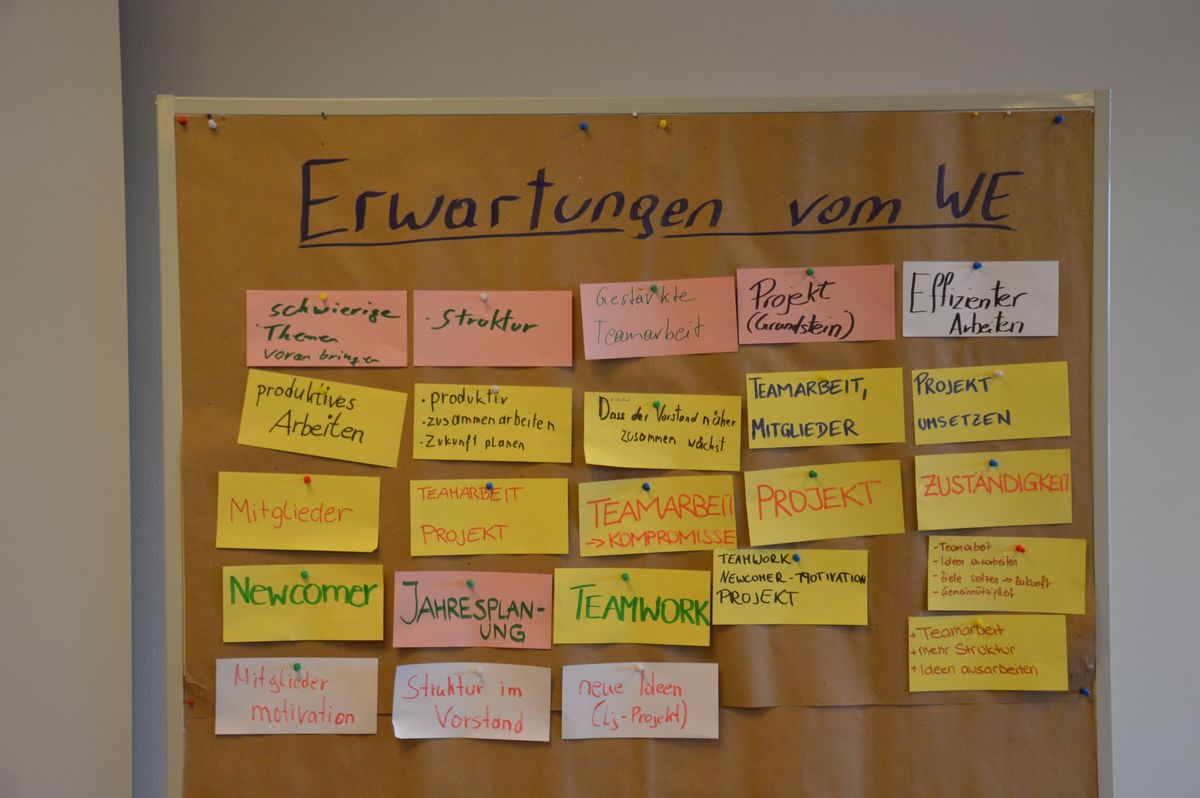 Erwartungen vom WE
schwierige
Themen
voran bringen
· Struktur
Gestärkte
Teamarbeit
Projekt
(Grundstein)
Effizienter
Arbeiten
produktives
Arbeiten
· produktiv
· zusammenarbeiten
· Zukunft planen
Dass der Vorstand näher
zusammen wächst
TEAMARBEIT,
MITGLIEDER
PROJEKT
UMSETZEN
Mitglieder
TEAMARBEIT
PROJEKT
TEAMARBEIT
→ KOMPROMISSE
PROJEKT
ZUSTÄNDIGKEIT
NEWCOMER
JAHRESPLAN-
UNG
TEAMWORK
TEAMWORK
NEWCOMER-MOTIVATION
PROJEKT
- Teamarbeit
- Ideen ausarbeiten
- Ziele setzen → Zukunft
- Gemeinnützigkeit
+ Teamarbeit
+ mehr Struktur
+ Ideen ausarbeiten
Mitglieder
motivation
Struktur im
Vorstand
neue Ideen
(Lj-Projekt)